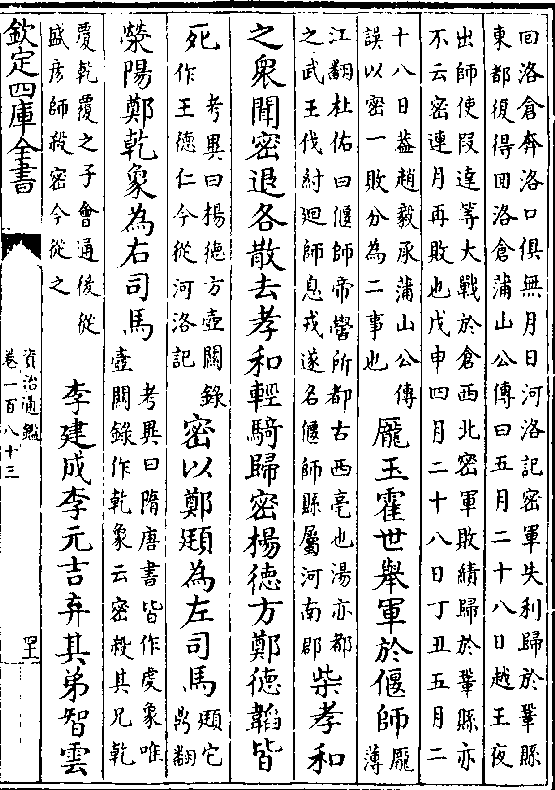 回洛倉奔洛口俱無月日河洛記密軍失利歸於鞏縣
東都復得回洛倉蒲山公傳曰五月二十八日越王夜
出師使叚達等大戰於倉西北密軍敗績歸於鞏縣亦
不云密連月再敗也戊申四月二十八日丁丑五月二
十八日葢趙毅承蒲山公傳
誤以密一敗分為二事也
龎玉霍世舉軍於偃師
龎
薄
江翻杜佑曰偃師帝嚳所都古西亳也湯亦都
之武王伐紂廻師息戎遂名偃師縣屬河南郡
柴孝和
之衆聞密退各散去孝和輕騎歸密楊德方鄭德韜皆
死
考異曰楊徳方壺關錄
作王德仁今從河洛記
密以鄭頲為左司馬
頲它
鼎翻
滎陽鄭乾象為右司馬
考異曰隋唐書皆作虔象唯
壺關錄作乾象云密殺其兄乾
覆乾覆之子會通後從
盛彦師殺密今從之
李建成李元吉弃其弟智雲
欽定四庫全書
資治通鑑
卷一百八十三